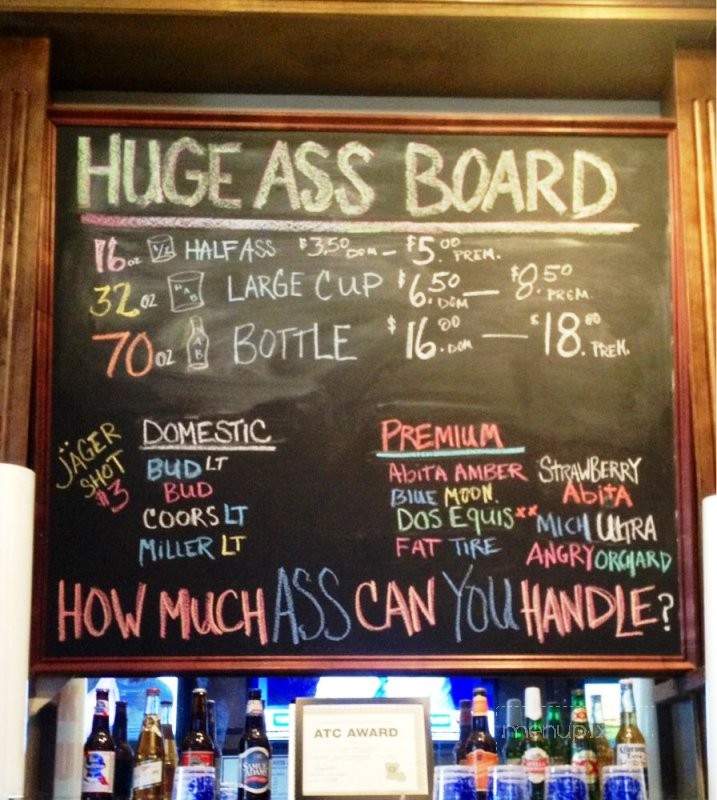 HUGE ASS BOARD
16 oz ½ HALF ASS $3.50 DOM - $5.00 PREM.
32 oz HAB LARGE CUP $6.50 DOM — $8.50 PREM.
70 oz HAB BOTTLE $16.00 DOM — $18.00 PREM.
JÄGER
SHOT
$3
DOMESTIC
BUD LT
BUD
COORS LT
MILLER LT
PREMIUM
ABITA AMBER
BLUE MOON.
DOS EQUIS xx
FAT TIRE
STRAWBERRY
ABITA
MICH ULTRA
ANGRY ORCHARD
HOW MUCH ASS CAN YOU HANDLE?
ATC AWARD
SAMUEL
ADAMS
Corona
menupix